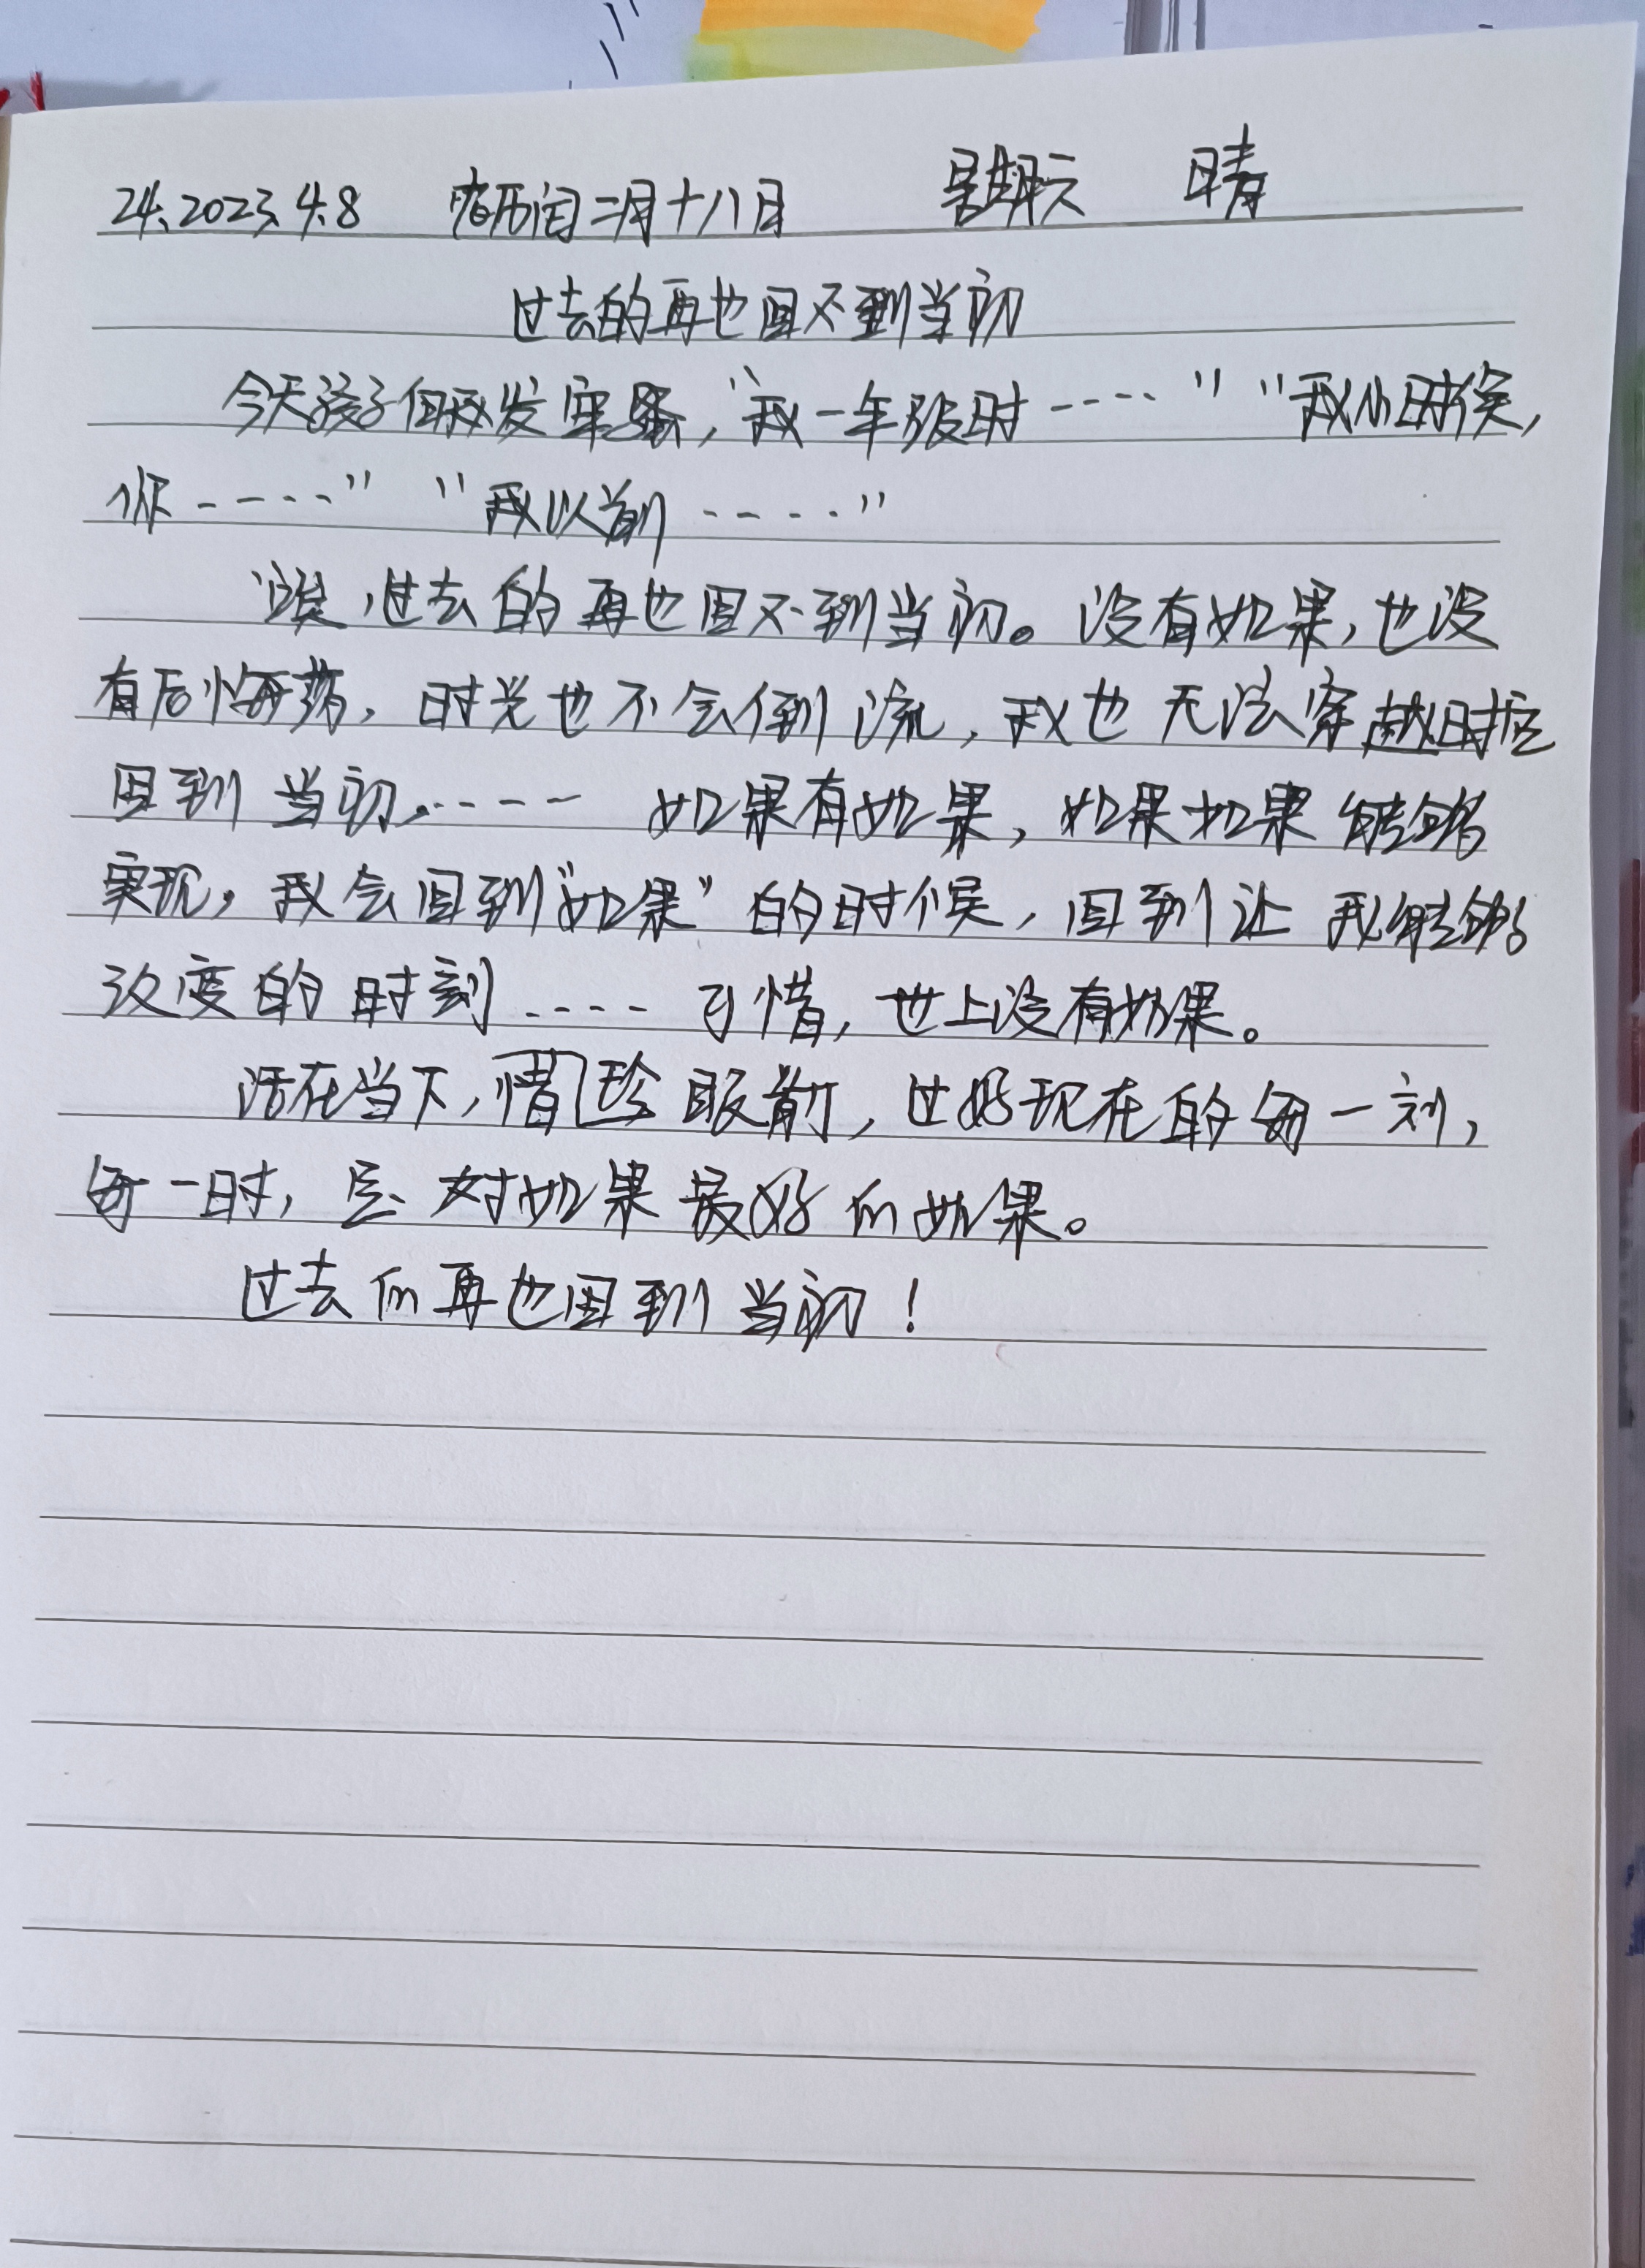 24、2023.4.8 农历闰二月十八日 星期六 晴
过去的再也回不到当初
今天孩子向我发牢骚，“我一年级时……” “我小时候，
你……” “我以前……”
唉，过去的再也回不到当初。没有如果，也没
有后悔药，时光也不会倒流，我也无法穿越时空
回到当初。…… 如果有如果，如果如果能够
实现，我会回到“如果”的时候，回到让我能够
改变的时刻…… 可惜，世上没有如果。
活在当下，惜珍眼前，过好现在的每一刻，
每一时，是对如果最好的如果。
过去的再也回到当初！